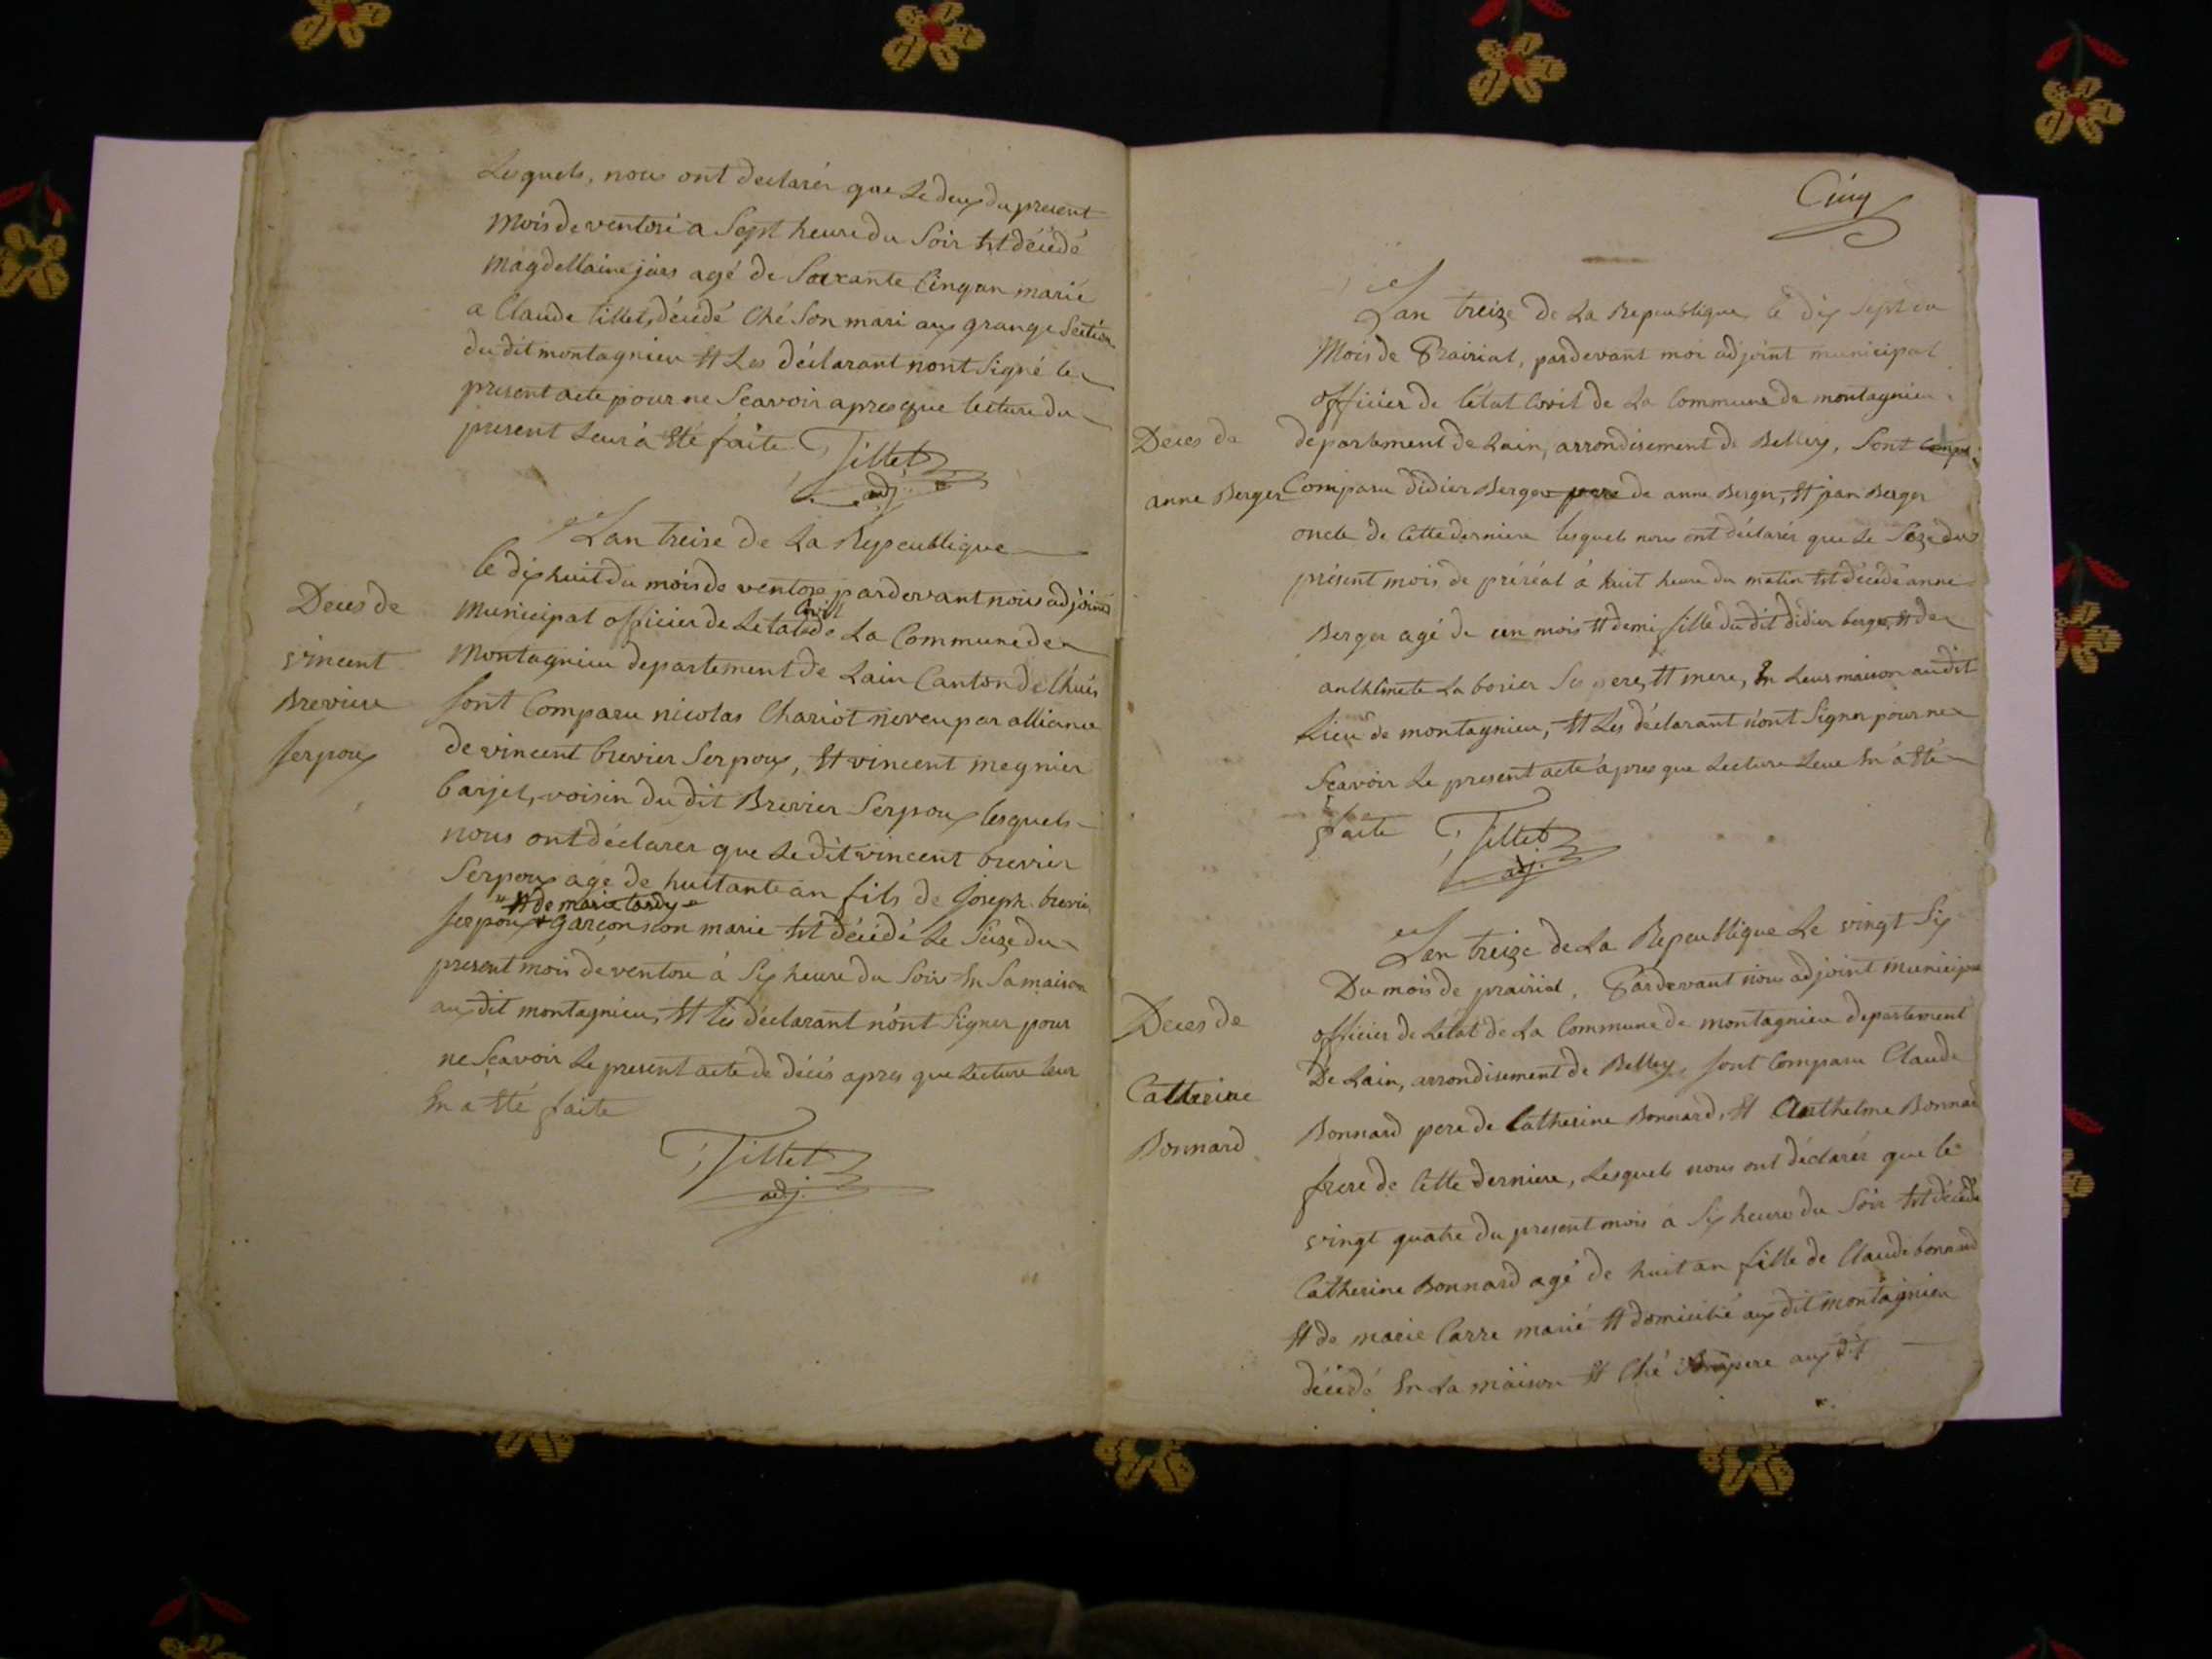 Lesquels, nous ont declarér que le deux du present
mois de ventose a Sept heure du Soir Est décédé
magdellaine jars agé de Soixante Cinq an marié
a Claude tillet, décédé Ché Son mari aux grange Section
du dit montagnieu Et Les déclarant nont Signé le
present acte pour ne Scavoir apres que lecture du
present Leur à Eté faite Tillet
adj.
Lan treize de La Republique
le dix huit du mois de ventose pardevant nous adjoint
Civil
Municipal officier de Letat de La Commune de
Montagnieu departement de Lain Canton de lhuis
Sont Comparu nicolas Chariot neveu par alliance
de vincent brevier Serpoux, Et vincent megnier
barjet, voisin du dit Brevier Serpoux lesquels
nous ont déclarer que Le dit vincent brevier
Serpoux agé de huitante an fils de Joseph brevier
Et de marie tardy
Serpoux garçon non marié Est décédé Le Seize du
present mois de ventose à Six heure du Soir En Sa maison
aux dit montagnieu, Et les déclarant n'ont Signer pour
ne Sçavoir Le present acte de décés apres que Lecture leur
En a Eté faite
Tillet
adj.
Deces de
vincent
Breviere
Serpoux
Cinq
Lan treize de La Republique le dix Sept du
Mois de Prairial, pardevant moi adjoint municipal
officier de l'état Civil de La Commune de montagnieu
departement de Lain, arrondisement de Belley, Sont Compa
Comparu didier Berger pere de anne Berger, Et jean Berger
oncle de Cette derniere lesquels nous ont déclarér que Le Seze du
présent mois de préréal à huit heure du matin Est décédé anne
Berger agé de un mois Et demi fille du dit didier berger, Et de
anthlmete La borier Ses pere, Et mere, En Leur maison audit
Lieu de montagnieu, Et Les déclarant n'ont Signer pour ne
Scavoir Le present acte apres que Lecture Leur En á Eté
faite Tillet
adj.
Deces de
anne Berger
Lan treize de La Republique Le vingt Six
Du mois de prairial, Pardevant nous adjoint municipal
officier de Létat de La Commune de montagnieu departement
De Lain, arrondisement de Belley, Sont Comparu Claude
Bonnard pere de Catherine Bonnard, Et Anthelme Bonnard
frere de Cette derniere, Lesquels nous ont déclarér que le
vingt quatre du present mois à Six heure du Soir Est décédé
Catherine Bonnard agé de huit an fille de Claude bonnard
Et de marie Carre marié Et domicilié aux dit montagnieu
décédé En La maison Et Ché Son pere aux dit
Deces de
Catherine
Bonnard